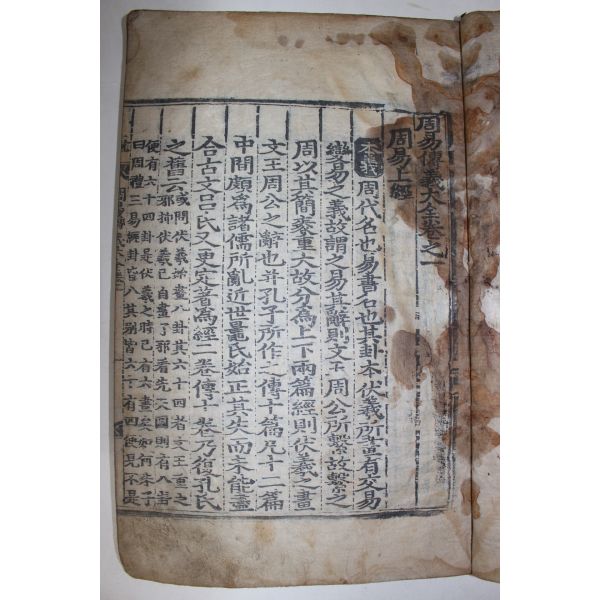 周易傳義大全卷之一
周易上經
本義 周代名也易書名也其卦本伏羲所畫有交易
變易之義故謂之易其辭則文王周公所繫故繫之
周以其簡袠重大故分爲上下兩篇經則伏羲之畫
文王周公之辭也并孔子所作之傳十篇凡十二篇
中間頗爲諸儒所亂近世鼂氏始正其失而未能盡
合古文呂氏又更定著爲經二卷傳十卷乃復孔氏
之舊云 或問伏羲始畫八卦其六十四者文王重之
邪抑伏羲已自畫了邪看先天圖則有八卦
便有六十四卦是伏羲之時已有六畫矣如何朱子
曰周禮三易經卦皆八其別皆六十有四便見不是